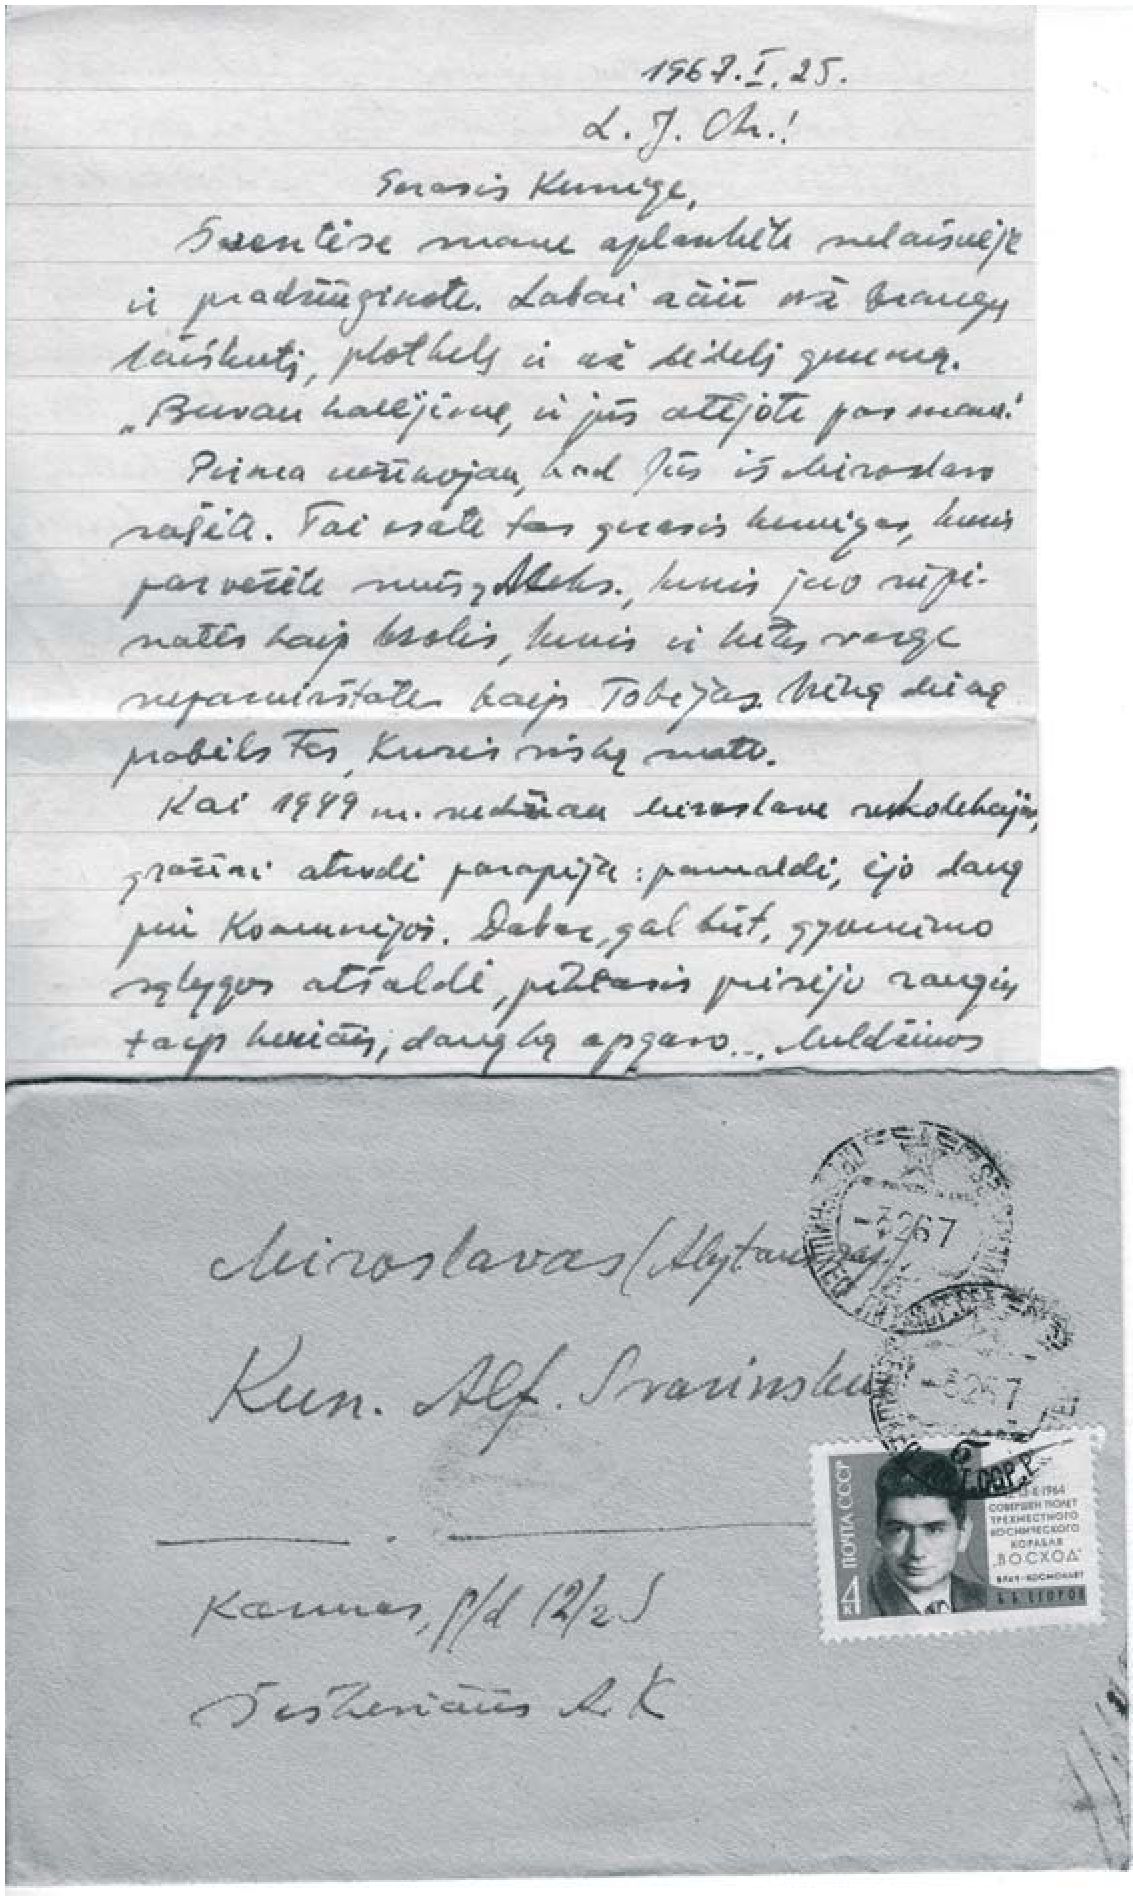 1967.I.25.
L. J. Chr.!
Gerasis Kunige,
Šventėse mane aplankėte nelaisvėje
ir pradžiuginote. Labai ačiū už brangų
laiškutį, plotkelę ir už didelį gerumą.
„Buvau kalėjime, ir jūs atėjote pas mane!
Pirma nežinojau, kad Jūs iš Miroslavo
rašėte. Tai esate tas gerasis kunigas, kuris
parvežėte mūsų Aleks., kuris juo rūpi-
natės kaip brolis, kuris ir kitų varge
nepamirštate kaip Tobijas. Vieną dieną
prabils Tas, Kuris viską mato.
Kai 1949 m. vedžiau Miroslave rekolekcijas,
gražiai atrodė parapija: pamaldi, ėjo daug
prie Komunijos. Dabar, gal būt, gyvenimo
sąlygos atšaldė, priėjo raugių
taip kviečių, daug ką apgavo... Meldžiuos
Miroslavas (Alytaus raj.)
Kun. Alf. Svarinskui
Kaunas, p/d 12/2 S
Šeškevičius A. K
-3267
-3267
ПОЧТА СССР
4 К
12-13-X-1964
СОВЕРШЕН ПОЛЕТ
ТРЕХМЕСТНОГО
КОСМИЧЕСКОГО
КОРАБЛЯ
„ВОСХОД"
ВРАЧ-КОСМОНАВТ
Б.Б.ЕГОРОВ